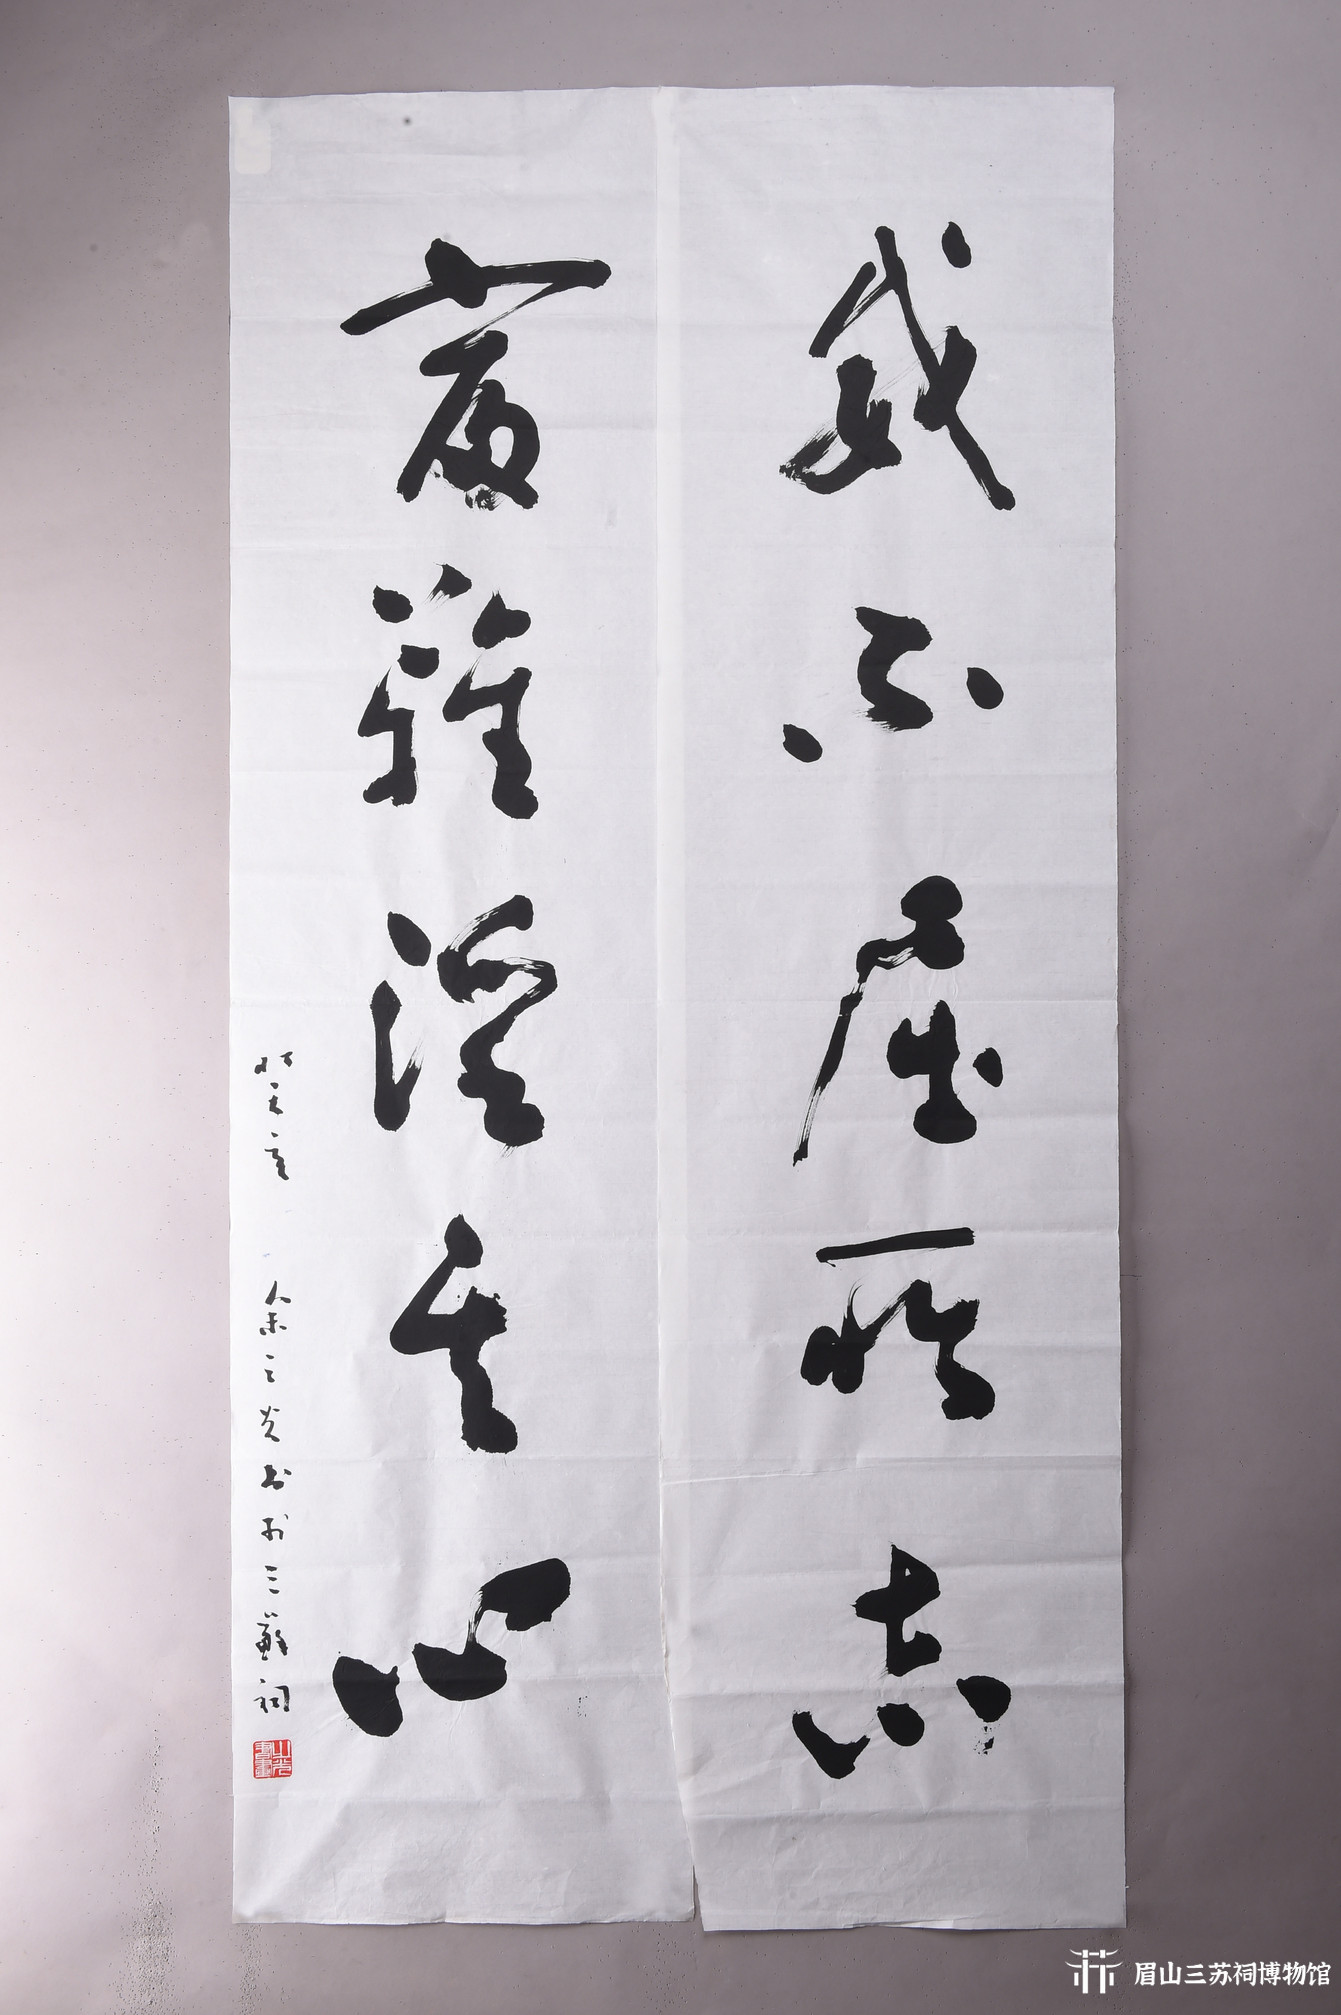 威不屈所志
富难淫其心
癸亥 余之光书于三蘇祠
眉山三苏祠博物馆